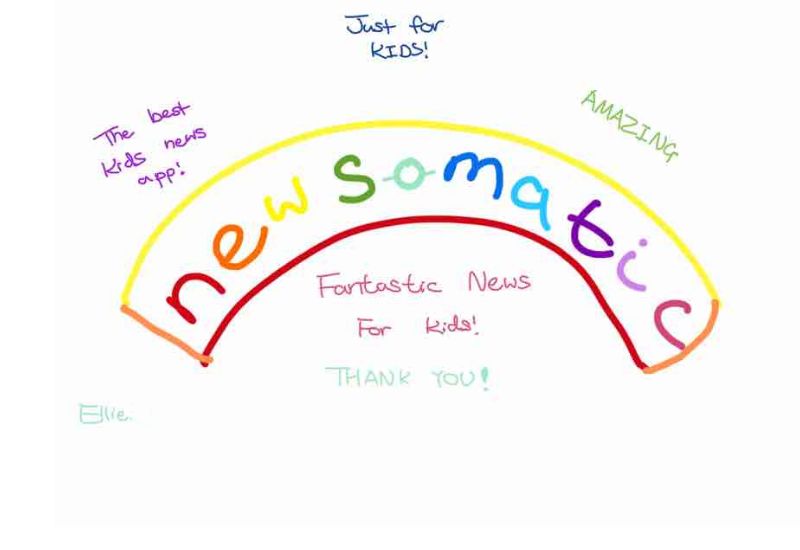 Just for
KIDS!
The best
Kids news
app!
AMAZING
news-o-matic
Fantastic News
For Kids!
THANK YOU!
Ellie.